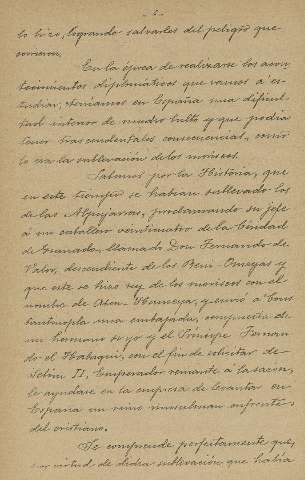 - 2 -
lo hizo, logrando salvarles del peligro que
corrieron.
En la época de realizarse los acon-
tecimientos diplomáticos que vamos a es-
tudiar, teníamos en España una dificul-
tad interior de mucho bulto y que podía
tener trascendentales consecuencias, como
lo era la sublevación de los moriscos.
Sabemos por la Historia, que
en este tiempo se habían sublevado los
de las Alpujarras, proclamando su jefe
á un caballero veinticuatro de la Ciudad
de Granada, llamado Don Fernando de
Valor, descendiente de los Beni-Omeyas y
que este se hizo rey de los moriscos con el
nombre de Aben-Humeya, y envió a Cons
tantinopla una embajada, compuesta de
un hermano suyo y el Príncipe Fernan
do el Habaquí, con el fin de solicitar de
Selim II, Emperador reinante á la sazón,
le ayudase en la empresa de levantar en
España un reino musulman enfrente
del cristiano.
Se comprende perfectamente que,
en virtud de dicha sublevación que había